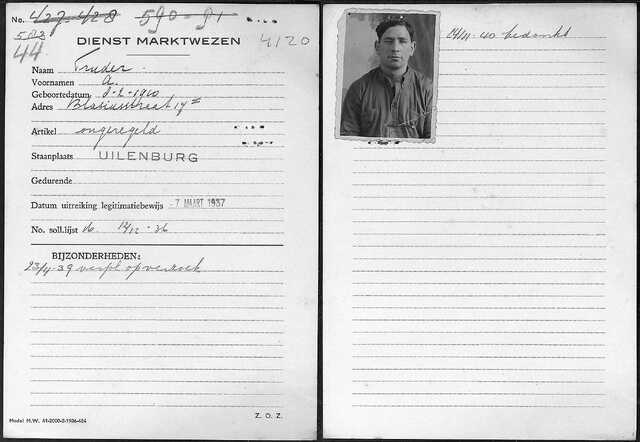 No. 427-428 590-91
573
44
DIENST MARKTWEZEN
4120
Naam Truder.
Voornamen A.
Geboortedatum 8-2-1910
Adres Blasiusstraat
Artikel ongeregeld
Staanplaats UILENBURG
Gedurende
Datum uitreiking legitimatiebewijs -7 MAART 1937
No. soll.lijst 16. 14/12-36
BIJZONDERHEDEN:
23/4-39 verpl op verzoek
Model M.W. 41-2000-2-1936-454
Z. O. Z.
14/11-40 bedankt